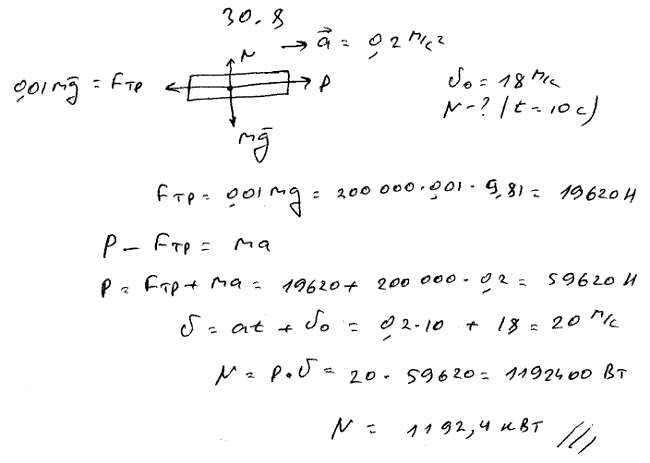 30.8
N → a⃗ = 0,2 м/с²
0,01mg̅ = Fтр P υ₀ = 18 м/с
N - ? (t = 10 с)
mg̅
Fтр = 0,01 mg = 200 000 · 0,01 · 9,81 = 19620 Н
P - Fтр = ma
P = Fтр + ma = 19620 + 200 000 · 0,2 = 59620 Н
υ = at + υ₀ = 0,2 · 10 + 18 = 20 м/с
N = P · υ = 20 · 59620 = 1192400 Вт
N = 1192,4 кВт